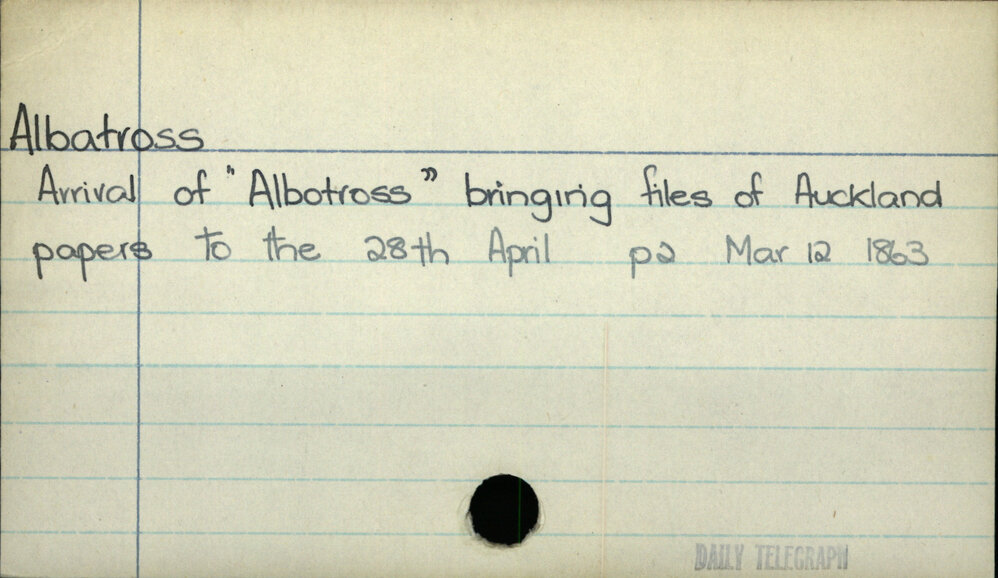 Albatross
Arrival of "Albotross" bringing files of Auckland
papers to the 28th April p2 Mar 12 1863
DAILY TELEGRAPH